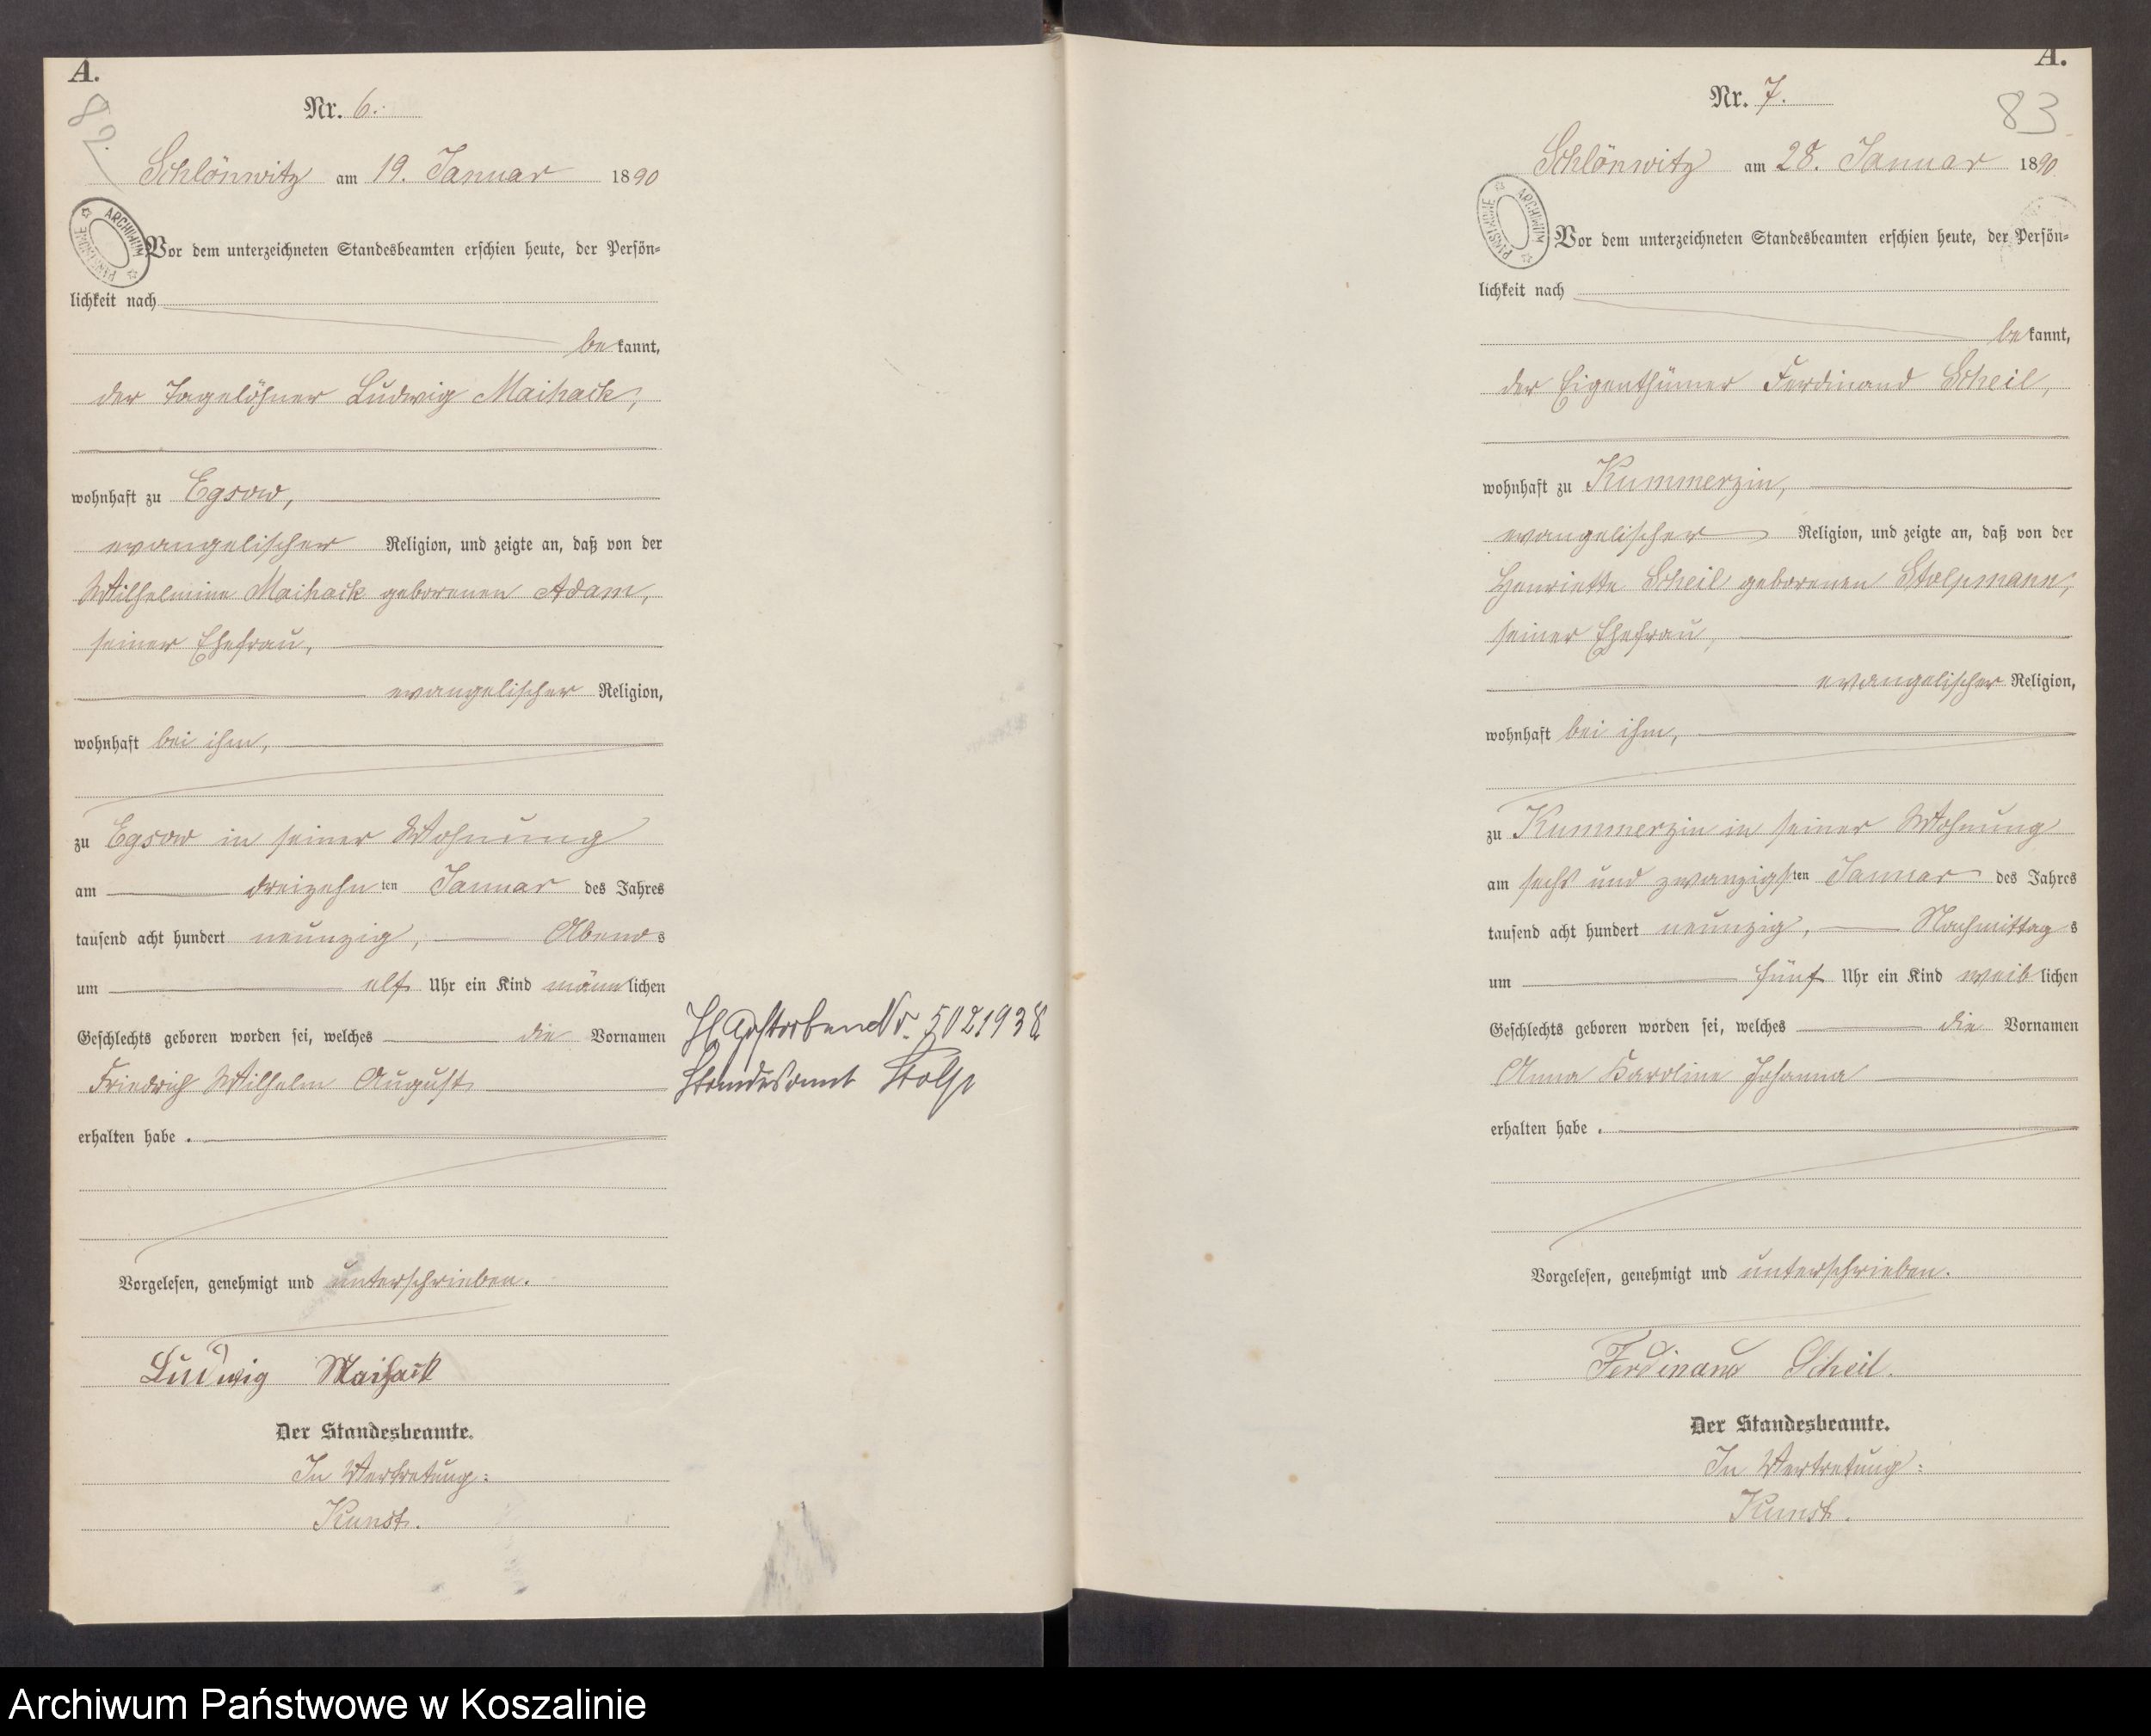 A.
82.
Nr. 6.
Schlönwitz am 19. Januar 1890
ARCHIWUM PAŃSTWOWE
Vor dem unterzeichneten Standesbeamten erschien heute, der Persön=
lichkeit nach
bekannt,
der Tagelöhner Ludwig Maihack,
wohnhaft zu Egsow,
evangelischer Religion, und zeigte an, daß von der
Wilhelmine Maihack geborenen Adam,
seiner Ehefrau,
evangelischer Religion,
wohnhaft bei ihm,
zu Egsow in seiner Wohnung
am dreizehnten Januar des Jahres
tausend acht hundert neunzig, Abends
um elf Uhr ein Kind männlichen
Geschlechts geboren worden sei, welches die Vornamen
Friedrich Wilhelm August
erhalten habe.
Vorgelesen, genehmigt und unterschrieben.
Ludwig Maihack
Der Standesbeamte.
In Vertretung:
Kunst.
gestorben Nr. 502 1938
Standesamt Stolp
A.
83
Nr. 7.
Schlönwitz am 28. Januar 1890
ARCHIWUM PAŃSTWOWE
Vor dem unterzeichneten Standesbeamten erschien heute, der Persön=
lichkeit nach
bekannt,
der Eigenthümer Ferdinand Scheil,
wohnhaft zu Kummerzin,
evangelischer Religion, und zeigte an, daß von der
Henriette Scheil geborenen Stolpmann,
seiner Ehefrau,
evangelischer Religion,
wohnhaft bei ihm,
zu Kummerzin in seiner Wohnung
am sechs und zwanzigsten Januar des Jahres
tausend acht hundert neunzig, Nachmittags
um fünf Uhr ein Kind weiblichen
Geschlechts geboren worden sei, welches die Vornamen
Anna Karoline Johanna
erhalten habe.
Vorgelesen, genehmigt und unterschrieben.
Ferdinand Scheil.
Der Standesbeamte.
In Vertretung:
Kunst.
Archiwum Państwowe w Koszalinie